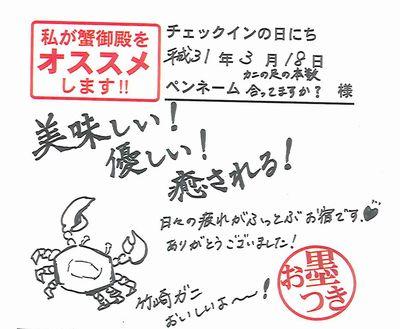 私が蟹御殿を
オススメ
します!!
チェックインの日にち
平成31年3月18日
カニの足の本数
ペンネーム 合ってますか? 様
美味しい!
優しい!
癒される!
日々の疲れがふっとぶお宿です♥
ありがとうございました!
竹崎ガニ
おいしいよ〜!
お墨つき